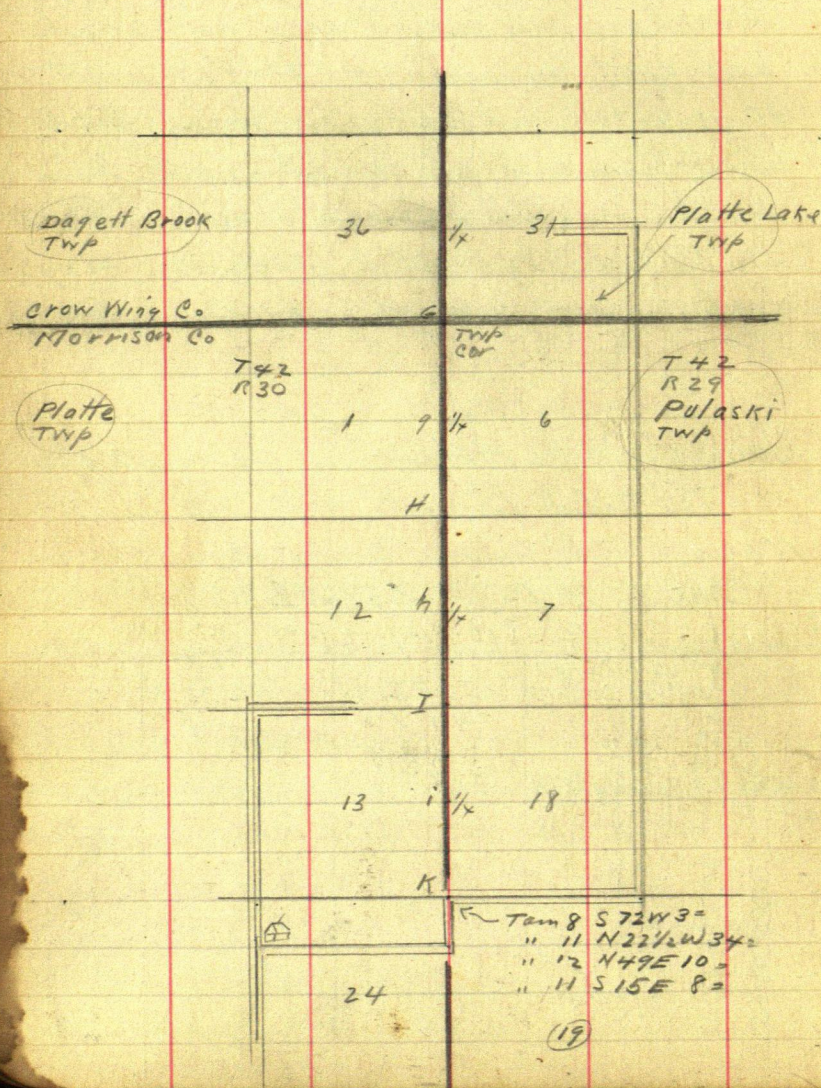 Dagett Brook
Twp
36
1/4
31
Platte Lake
Twp
Crow Wing Co
G
Morrison Co
Twp
Cor
T42
R30
T42
R29
Platte
Twp
Pulaski
Twp
1
g
1/4
6
H
12
h
1/4
7
I
13
i
1/4
18
K
Tam 8 S 72 W 3=
" 11 N 22 1/2 W 34=
" 12 N 49 E 10=
" 11 S 15 E 8=
24
19